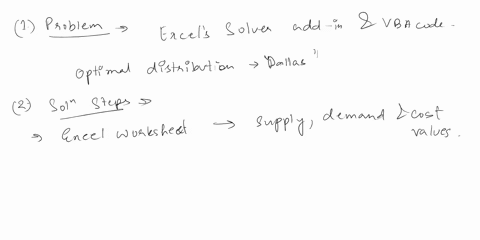 (1) Problem → Excel's Solver add-in & VBA code.
Optimal distribution → Dallas"
(2) Solⁿ Steps →
→ Excel worksheet → supply, demand & cost values.